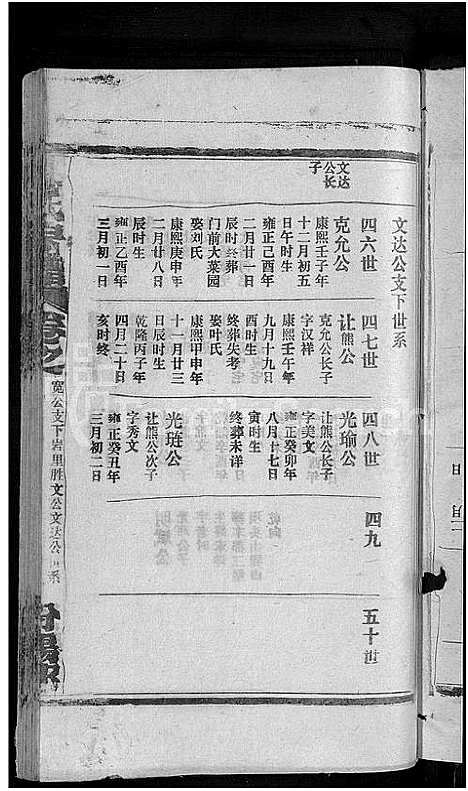 文达公支下世系
文达
公长
子
四六世
克允公
康熙壬子年
十二月初五
日午时生
雍正己酉年
二月廿一日
辰时终葬
门前大菜园
娶刘氏
康熙庚申年
二月廿八日
辰时生
雍正乙酉年
三月初一日
四七世
让熊公
克允公长子
字汉祥
康熙壬午年
九月十九日
酉时生
终葬失考
娶叶氏
康熙甲申年
十一月廿三
日辰时生
乾隆丙子年
四月二十日
亥时终
四八世
光瑜公
让熊公长子
字美文
雍正癸卯年
八月廿七日
寅时生
终葬未详
光琏公
让熊公次子
字秀文
雍正癸丑年
三月初二日
四九
五十世
宽公支下岩里胜文公文达公
系